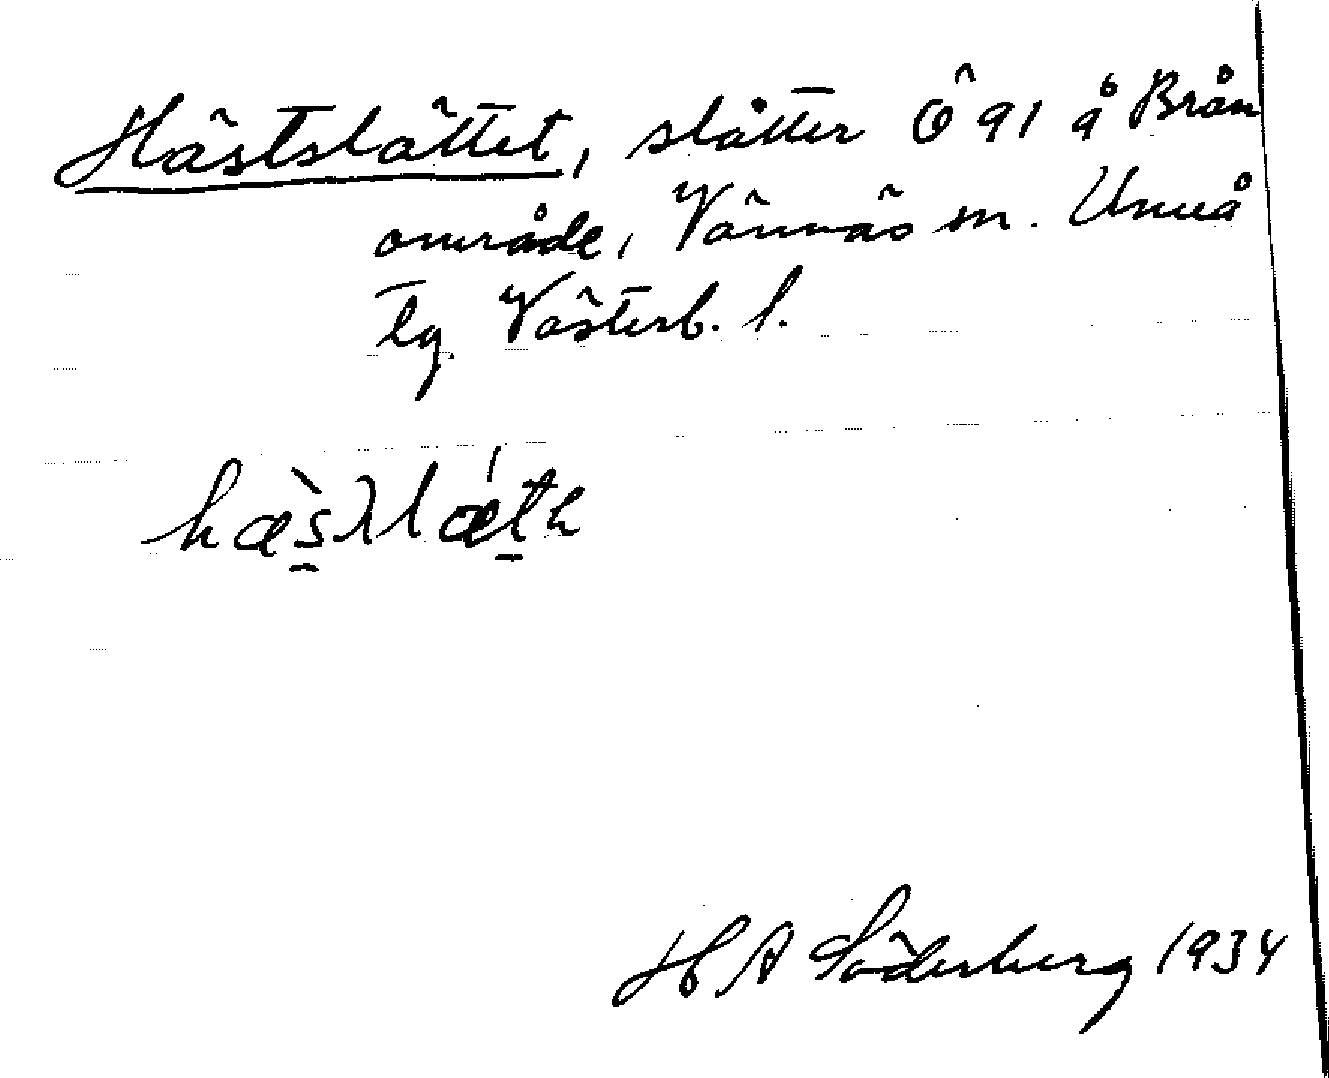 Hästslåttet, slåtter Ö 91 å Brån
område, Vännäs sn. Umeå
tg. Västerb. l.
hæ̀sλlǽtk
H A Söderberg 1934